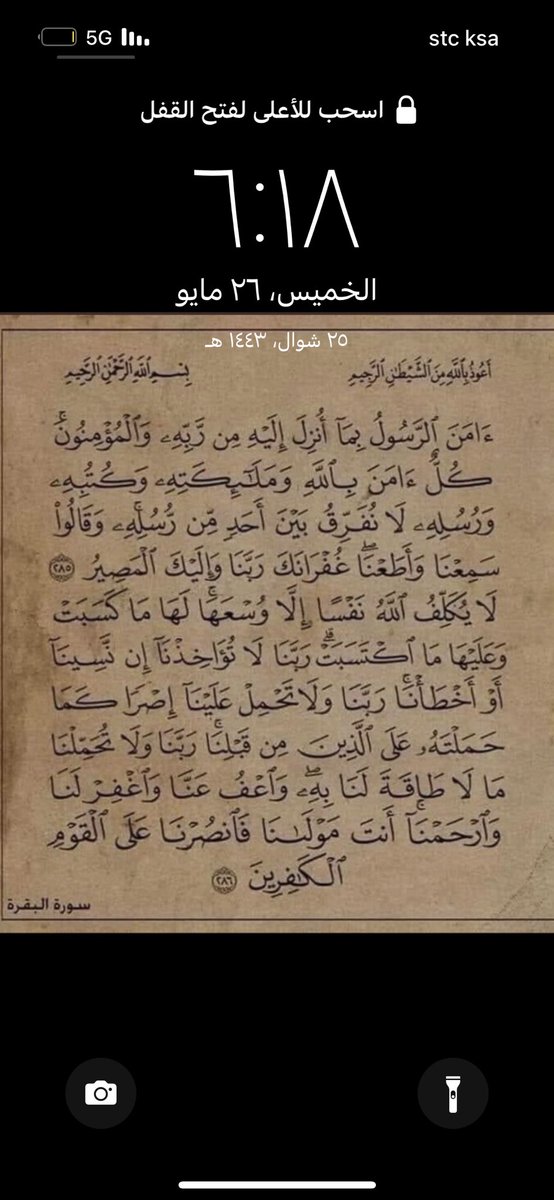 5G stc ksa
اسحب للأعلى لفتح القفل
٦:١٨
الخميس، ٢٦ مايو
٢٥ شوال، ١٤٤٣ هـ
أَعُوذُ بِٱللَّهِ مِنَ ٱلشَّيْطَٰنِ ٱلرَّجِيمِ بِسْمِ ٱللَّهِ ٱلرَّحْمَٰنِ ٱلرَّحِيمِ
ءَامَنَ ٱلرَّسُولُ بِمَآ أُنزِلَ إِلَيْهِ مِن رَّبِّهِۦ وَٱلْمُؤْمِنُونَۚ
كُلٌّ ءَامَنَ بِٱللَّهِ وَمَلَٰٓئِكَتِهِۦ وَكُتُبِهِۦ
وَرُسُلِهِۦ لَا نُفَرِّقُ بَيْنَ أَحَدٍ مِّن رُّسُلِهِۦۚ وَقَالُوا۟
سَمِعْنَا وَأَطَعْنَاۖ غُفْرَانَكَ رَبَّنَا وَإِلَيْكَ ٱلْمَصِيرُ ٢٨٥
لَا يُكَلِّفُ ٱللَّهُ نَفْسًا إِلَّا وُسْعَهَاۚ لَهَا مَا كَسَبَتْ
وَعَلَيْهَا مَا ٱكْتَسَبَتْۗ رَبَّنَا لَا تُؤَاخِذْنَآ إِن نَّسِينَآ
أَوْ أَخْطَأْنَاۚ رَبَّنَا وَلَا تَحْمِلْ عَلَيْنَآ إِصْرًا كَمَا
حَمَلْتَهُۥ عَلَى ٱلَّذِينَ مِن قَبْلِنَاۚ رَبَّنَا وَلَا تُحَمِّلْنَا
مَا لَا طَاقَةَ لَنَا بِهِۦۖ وَٱعْفُ عَنَّا وَٱغْفِرْ لَنَا
وَٱرْحَمْنَآۚ أَنتَ مَوْلَىٰنَا فَٱنصُرْنَا عَلَى ٱلْقَوْمِ
ٱلْكَٰفِرِينَ ٢٨٦
سورة البقرة